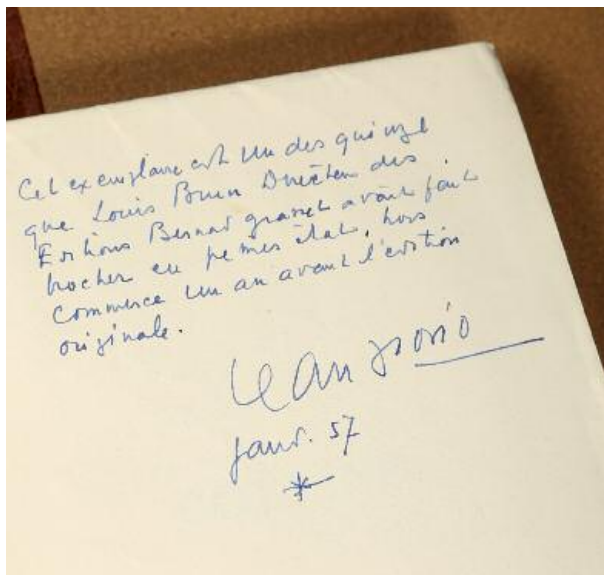 Cet exemplaire est un des quinze
que Louis Brun Directeur des
Editions Bernard grasset avait fait
brocher en premier état, hors
commerce un an avant l'edition
originale.
Jean Giono
janv. 57